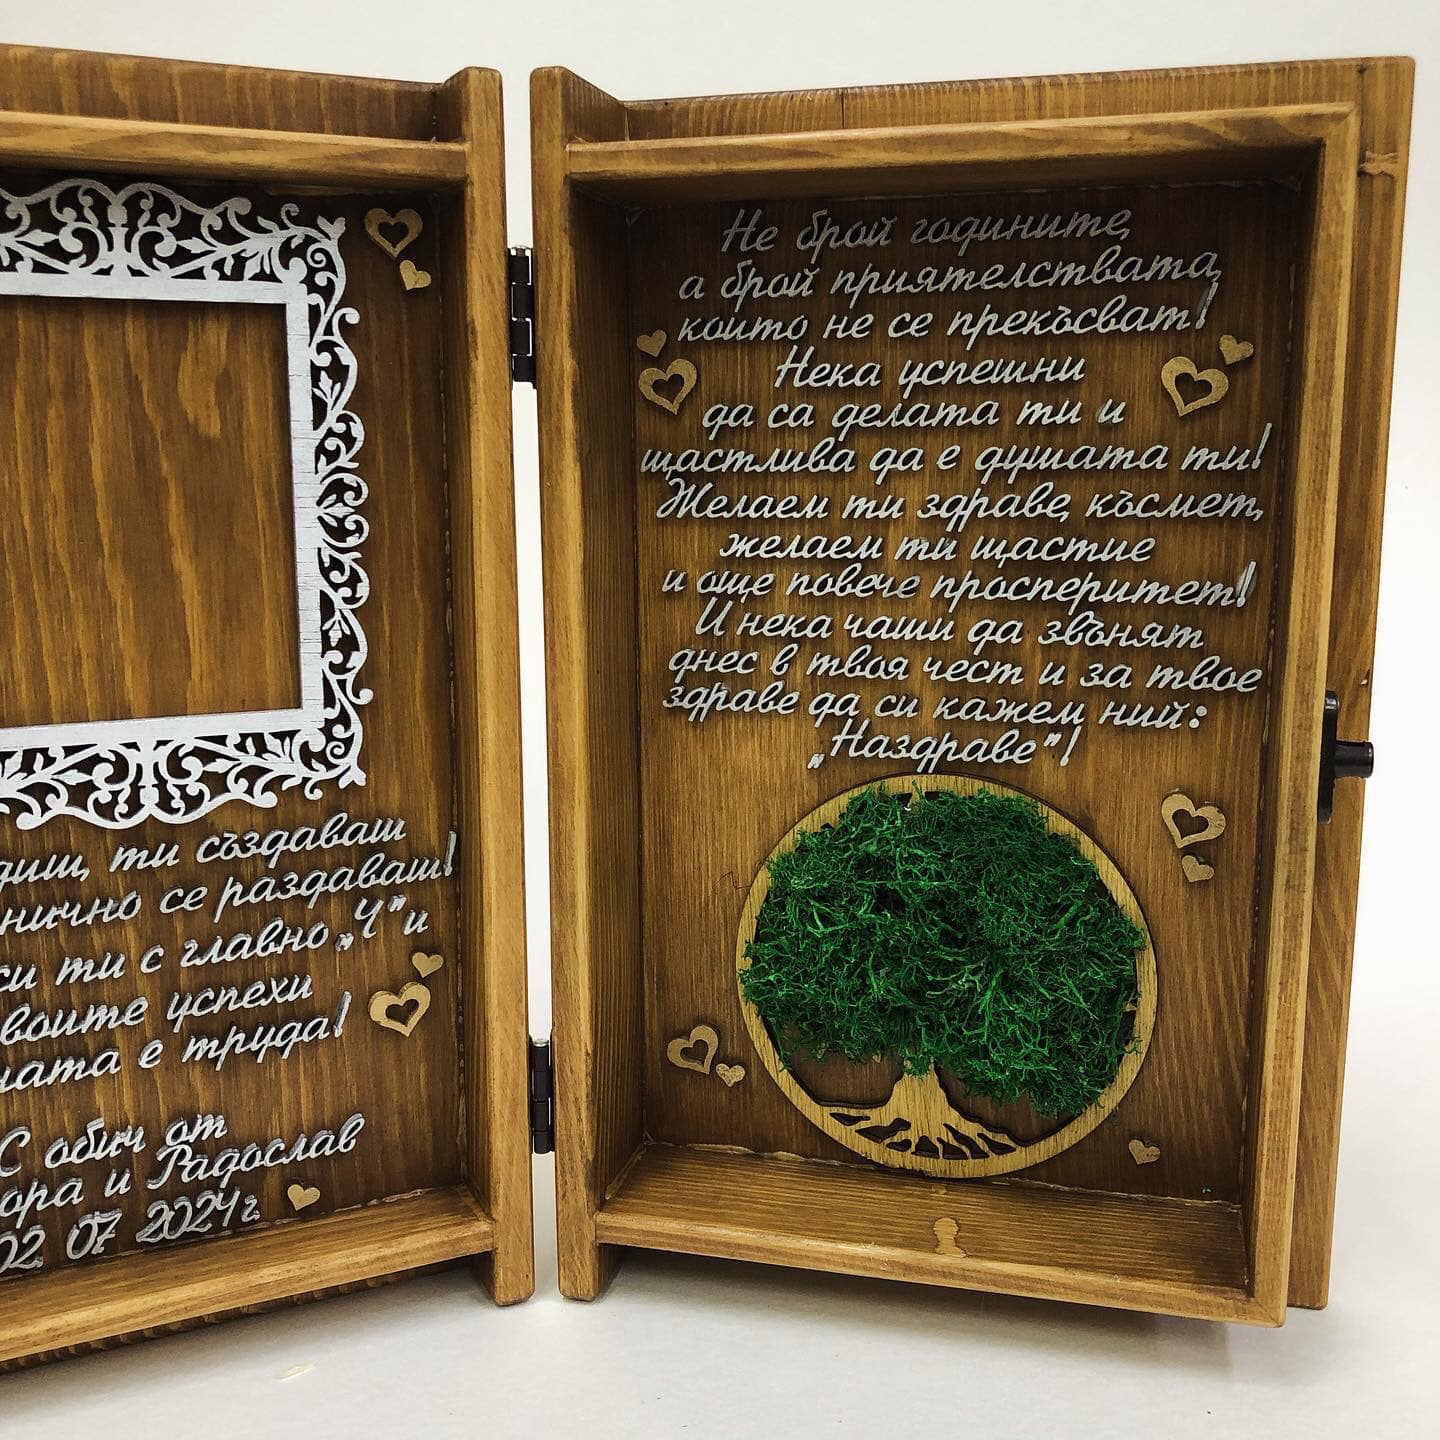 ти създаваш
се раздаваш!
ти с главно „Ч" и
успехи
е труда!
С обич от
и Радослав
02. 07. 2024г.
Не брой годините,
а брой приятелствата,
които не се прекъсват!
Нека успешни
да са делата ти и
щастлива да е душата ти!
Желаем ти здраве, късмет,
желаем ти щастие
и още повече просперитет!
И нека чаши да звънят
днес в твоя чест и за твое
здраве да си кажем ний:
„Наздраве"!